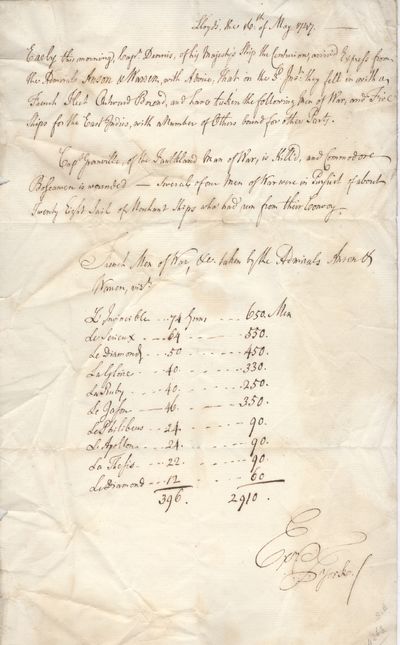 Lloyds, the 16th of May 1747
Early this morning, Capt. Dennis, of his Majesty's Ship the Centurion, arrived Express from
the Admirals Anson & Warren, with Advice, That on the 3d Inst. they fell in with a
French Fleet Outward Bound, and have taken the following Men of War, and Five
Ships for the East Indies, with a Number of Others bound for other Parts.
Capt Granville, of the Men of War, is Kill'd, and Commodore
Boscawen is wounded — Several of our Men of War were in Pursuit of about
Twenty Eight Sail of Merchant Ships who had run from their Convoy.
French Men of War, &c. taken by the Admirals Anson &
Warren, vizt.
L'Invincible .. 74 Guns - - - 650 Men
Le Serieux - - - 64 - - - 550.
Le Diamond - - 50 - - - 450.
La Gloire - - - 40. - - - 330.
La Ruby - - - 40. - - - 250.
Le Jason - - - 46. - - - 350.
Le - - - 24. - - - 90.
Le Apollon - - - 24. - - - 90.
La Thesis - - - 22. - - - 90.
Le Diamond - - - 12 - - - 60
396. 2910.